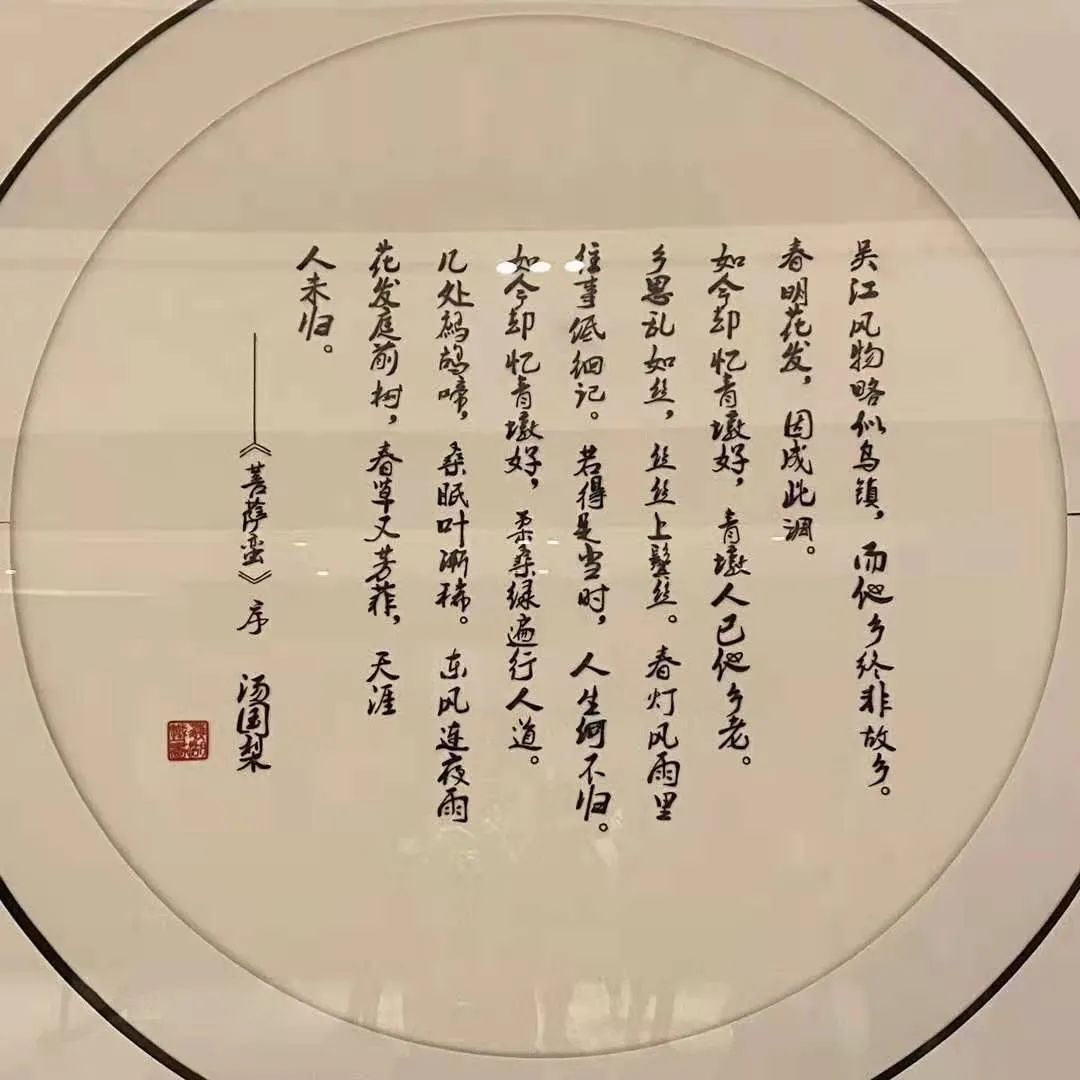 吴江风物略似乌镇，而他乡终非故乡。
春明花发，因成此调。
如今却忆青墩好，青墩人已他乡老。
乡思乱如丝，丝丝上鬓丝。春灯风雨里
往事低细记。若得是当时，人生何不归。
如今却忆青墩好，柔桑绿遍行人道。
几处鹧鸪啼，桑眠叶渐稀。东风连夜雨
花发庭前树，春草又芳菲，天涯
人未归。
——《菩萨蛮》序 汤国梨